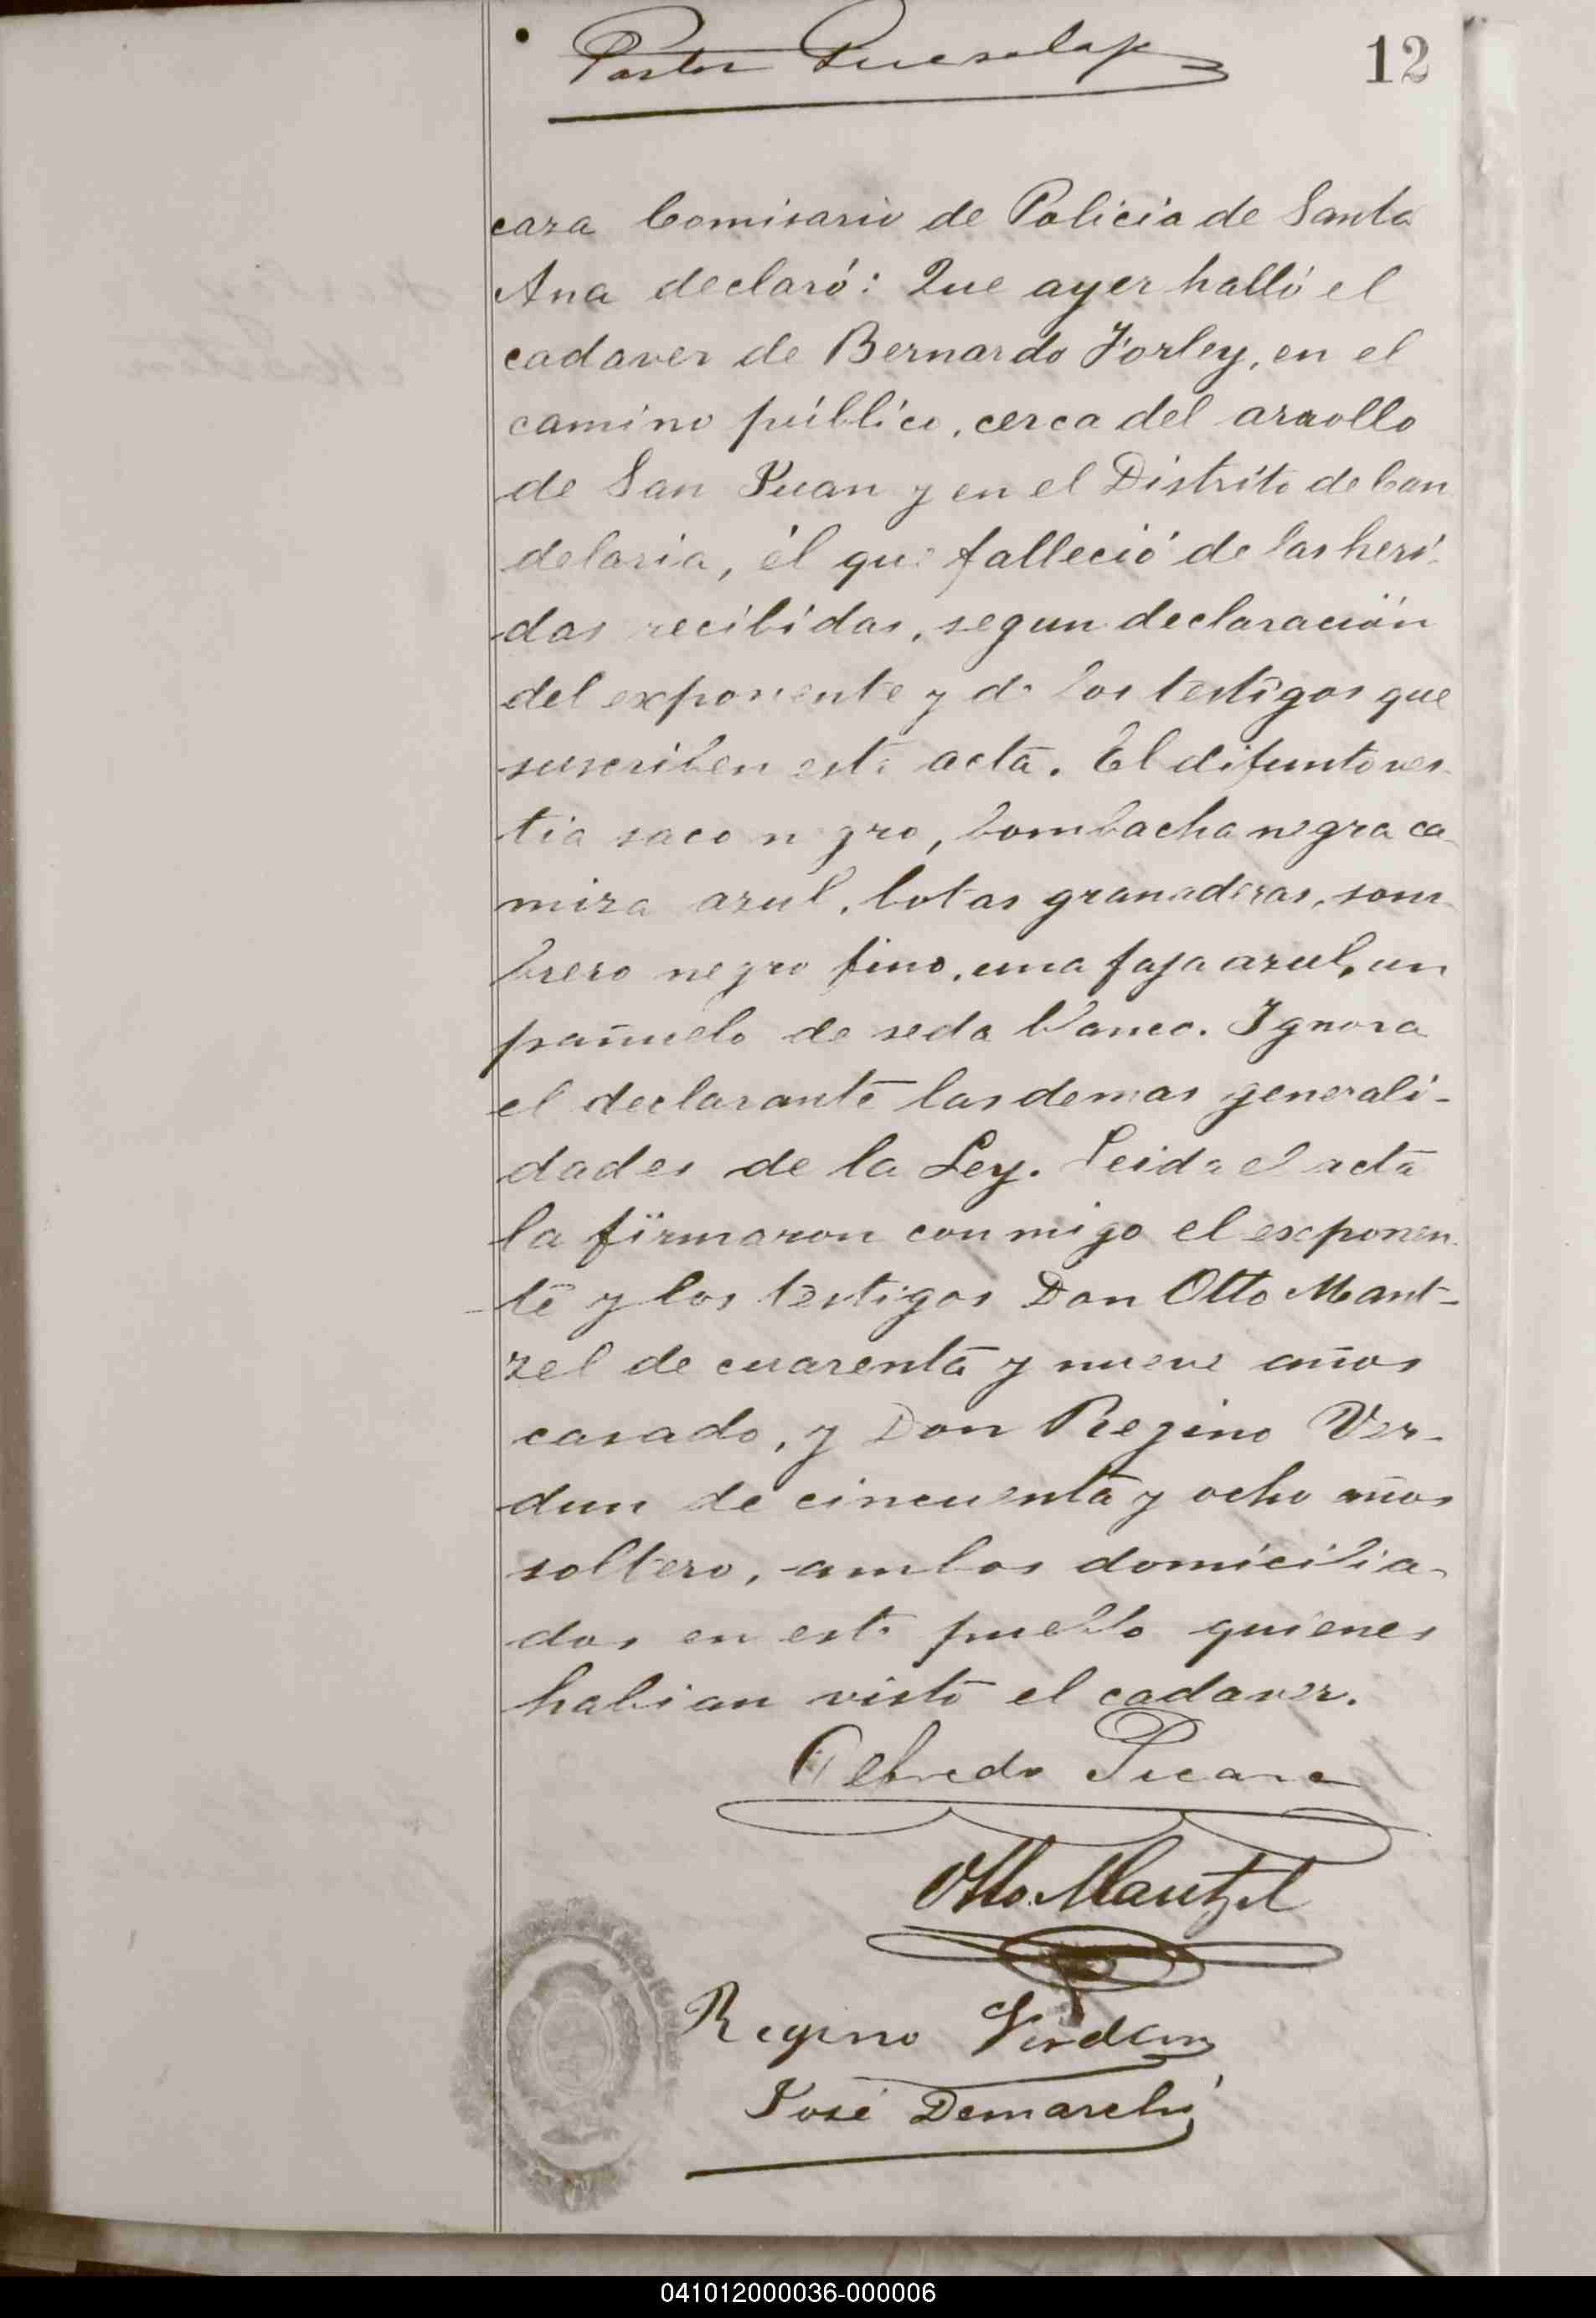 Pastor
12
caza Comisario de Policia de Santa
Ana declaró: Que ayer halló el
cadaver de Bernardo Forley, en el
camino público, cerca del arrollo
de San Juan y en el Distrito de Can
delaria, él que falleció de las heri-
das recibidas, segun declaración
del exponente y de los testigos que
suscriben esta acta. El difunto ves-
tia saco negro, bombacha negra ca-
miza azul, botas granaderas, som-
brero negro fino, una faja azul, un
pañuelo de seda blanco. Ignora
el declarante las demas generali-
dades de la Ley. Leida el acta
la firmaron conmigo el exponen-
te y los testigos Don Otto Mant-
zel de cuarenta y nueve años
casado, y Don Regino Ver-
dun de cincuenta y ocho años
soltero, ambos domicilia-
dos en este pueblo quienes
habian visto el cadaver.
Alfredo
Otto Mantzel
Regino Verdun
José Demarchi
041012000036-000006